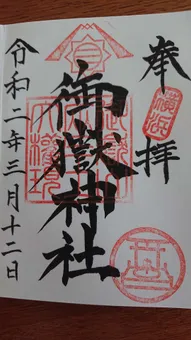 奉拝
横浜
御嶽神社
令和二年三月十二日